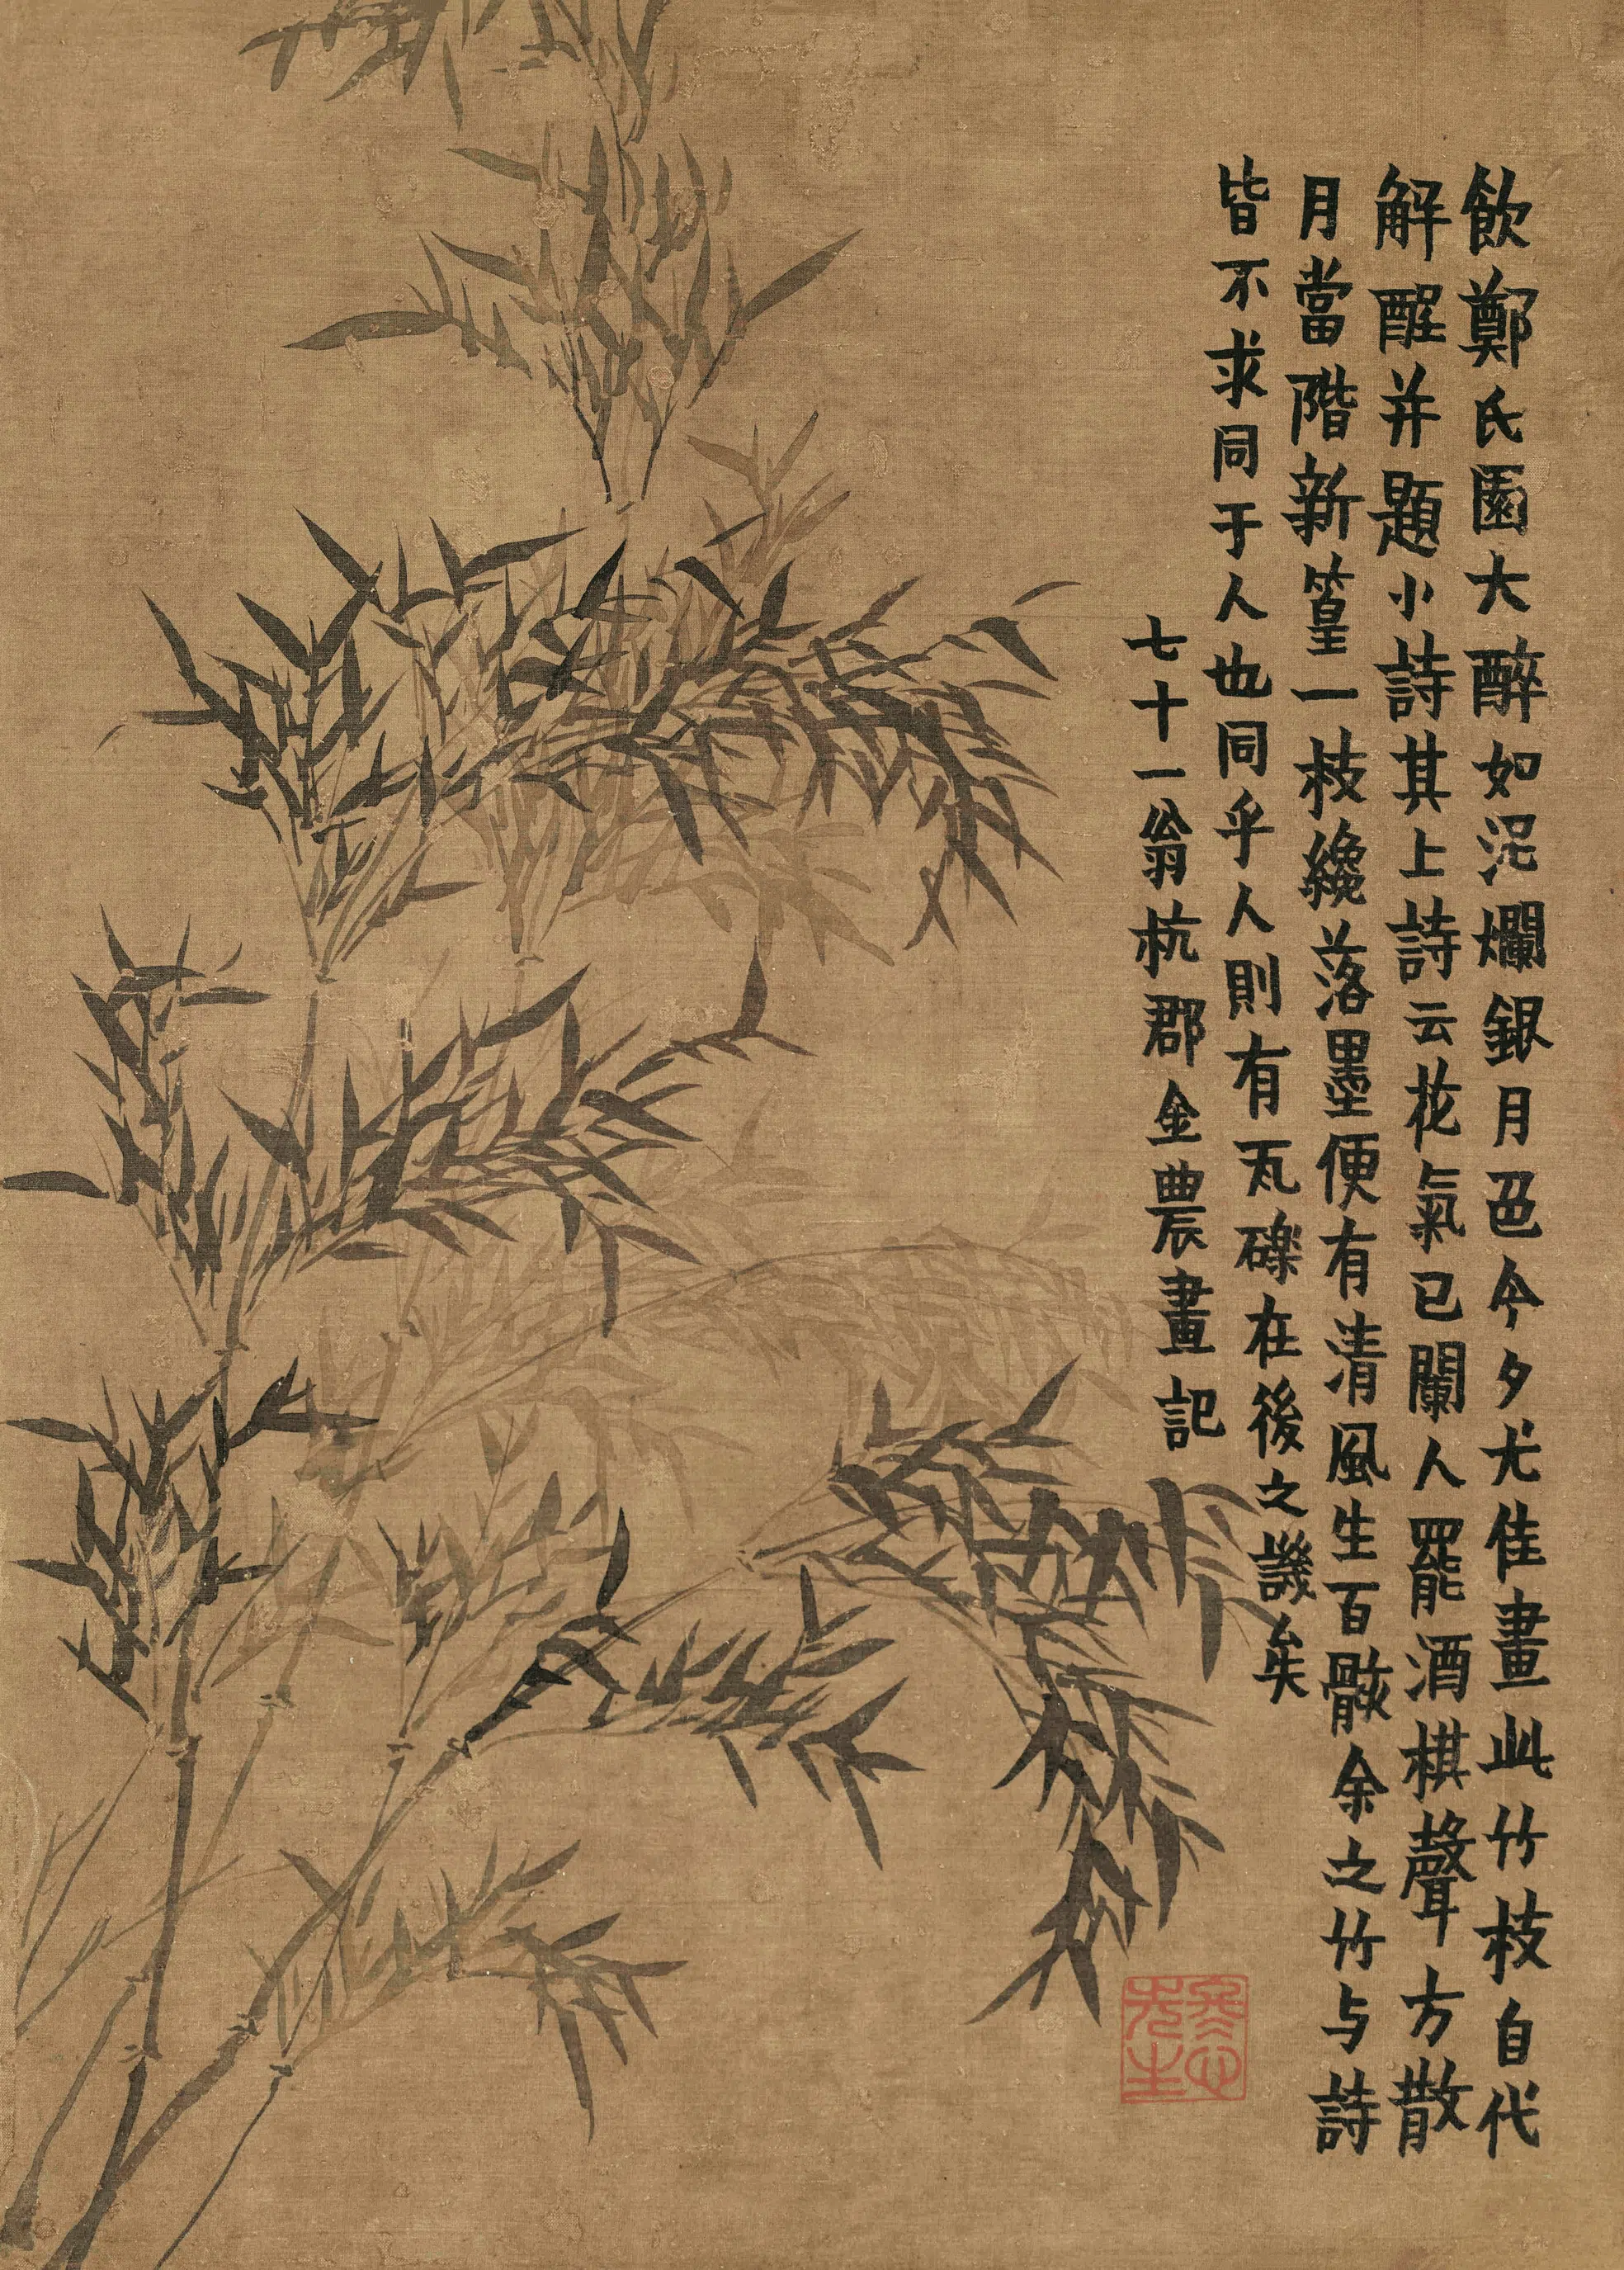 飲鄭氏園大醉如泥爛銀月色今夕尤佳畫此竹枝自代
解酲并題小詩其上詩云花氣已闌人罷酒棋聲方散
月當階新篁一枝纔落墨便有清風生百骸余之竹与詩
皆不求同于人也同乎人則有瓦礫在後之譏矣
七十一翁杭郡金農畫記
冬心先生